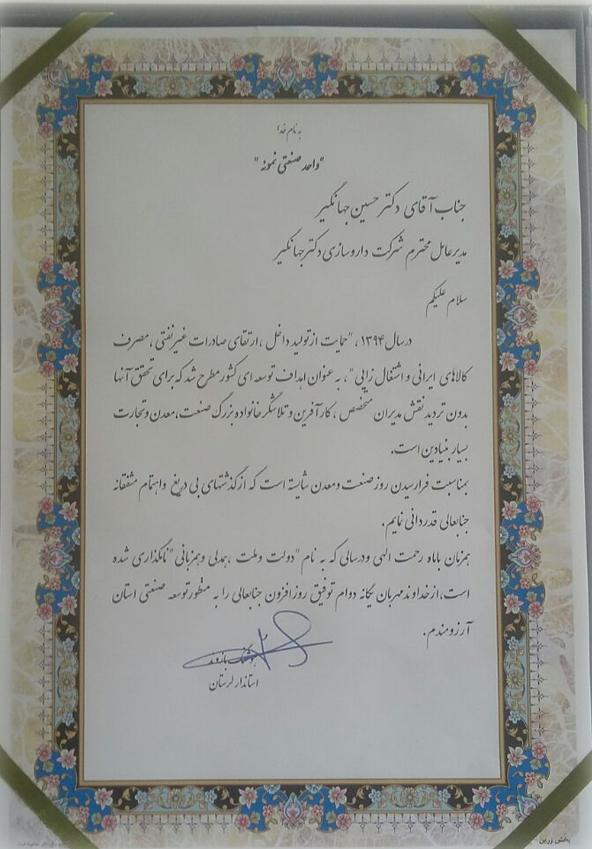 به نام خدا
"واحد صنعتی نمونه"
جناب آقای دکتر حسین جهانگیر
مدیرعامل محترم شرکت داروسازی دکتر جهانگیر
سلام علیکم
در سال ۱۳۹۴، "حمایت از تولید داخل، ارتقای صادرات غیرنفتی، مصرف
کالاهای ایرانی و اشتغال زایی"، به عنوان اهداف توسعه ای کشور مطرح شد که برای تحقق آنها
بدون تردید نقش مدیران متخصص، کارآفرین و تلاشگر خانواده بزرگ صنعت، معدن و تجارت
بسیار بنیادین است.
بمناسبت فرارسیدن روز صنعت و معدن شایسته است که از گذشتهای بی دریغ و اهتمام مشفقانه
جنابعالی قدردانی نمایم.
همزمان با ماه رحمت الهی و در سالی که به نام "دولت و ملت، همدلی و همزبانی" نامگذاری شده
است، از خداوند مهربان یگانه دوام توفیق روزافزون جنابعالی را به منظور توسعه صنعتی استان
آرزومندم.
هوشنگ بازوند
استاندار لرستان
پخش زرین